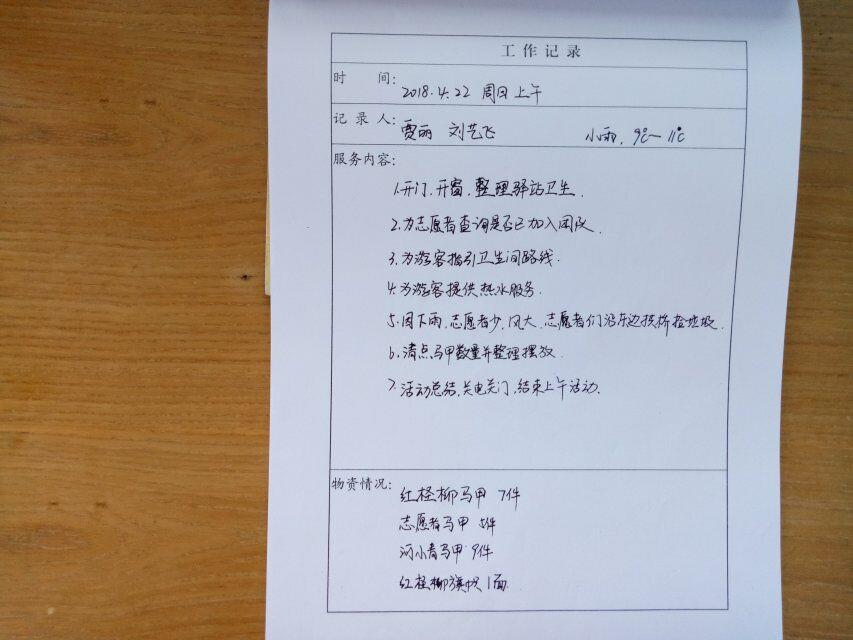 工作记录
时 间: 2018.4.22 周日上午
记录人: 贾丽 刘艺飞 小雨, 9℃~11℃
服务内容:
1.开门、开窗、整理驿站卫生.
2.为志愿者查询是否已加入团队.
3.为游客指引卫生间路线.
4.为游客提供热水服务.
5.因下雨,志愿者少,风大,志愿者们沿东边捡垃圾.
6.清点马甲数量并整理摆放.
7.活动总结,关电关门,结束上午活动.
物资情况: 红柽柳马甲 7件
志愿者马甲 件
河小青马甲 9件
红柽柳旗帜 1面